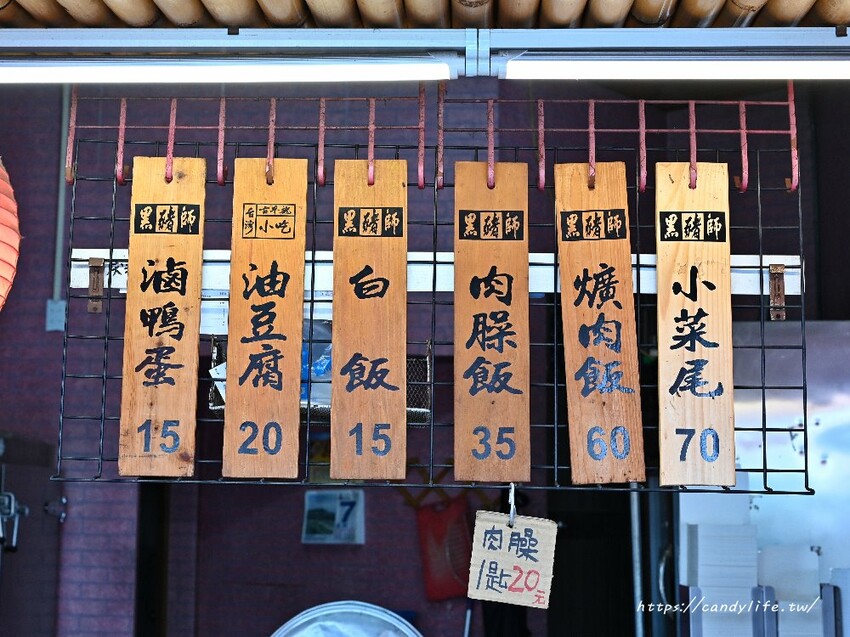 黑豬師
滷鴨蛋
15
台灣
古早風
小吃
油豆腐
20
黑豬師
白飯
15
黑豬師
肉臊飯
35
黑豬師
爌肉飯
60
黑豬師
小菜尾
70
肉臊
1匙20元
7
https://candylife.tw/